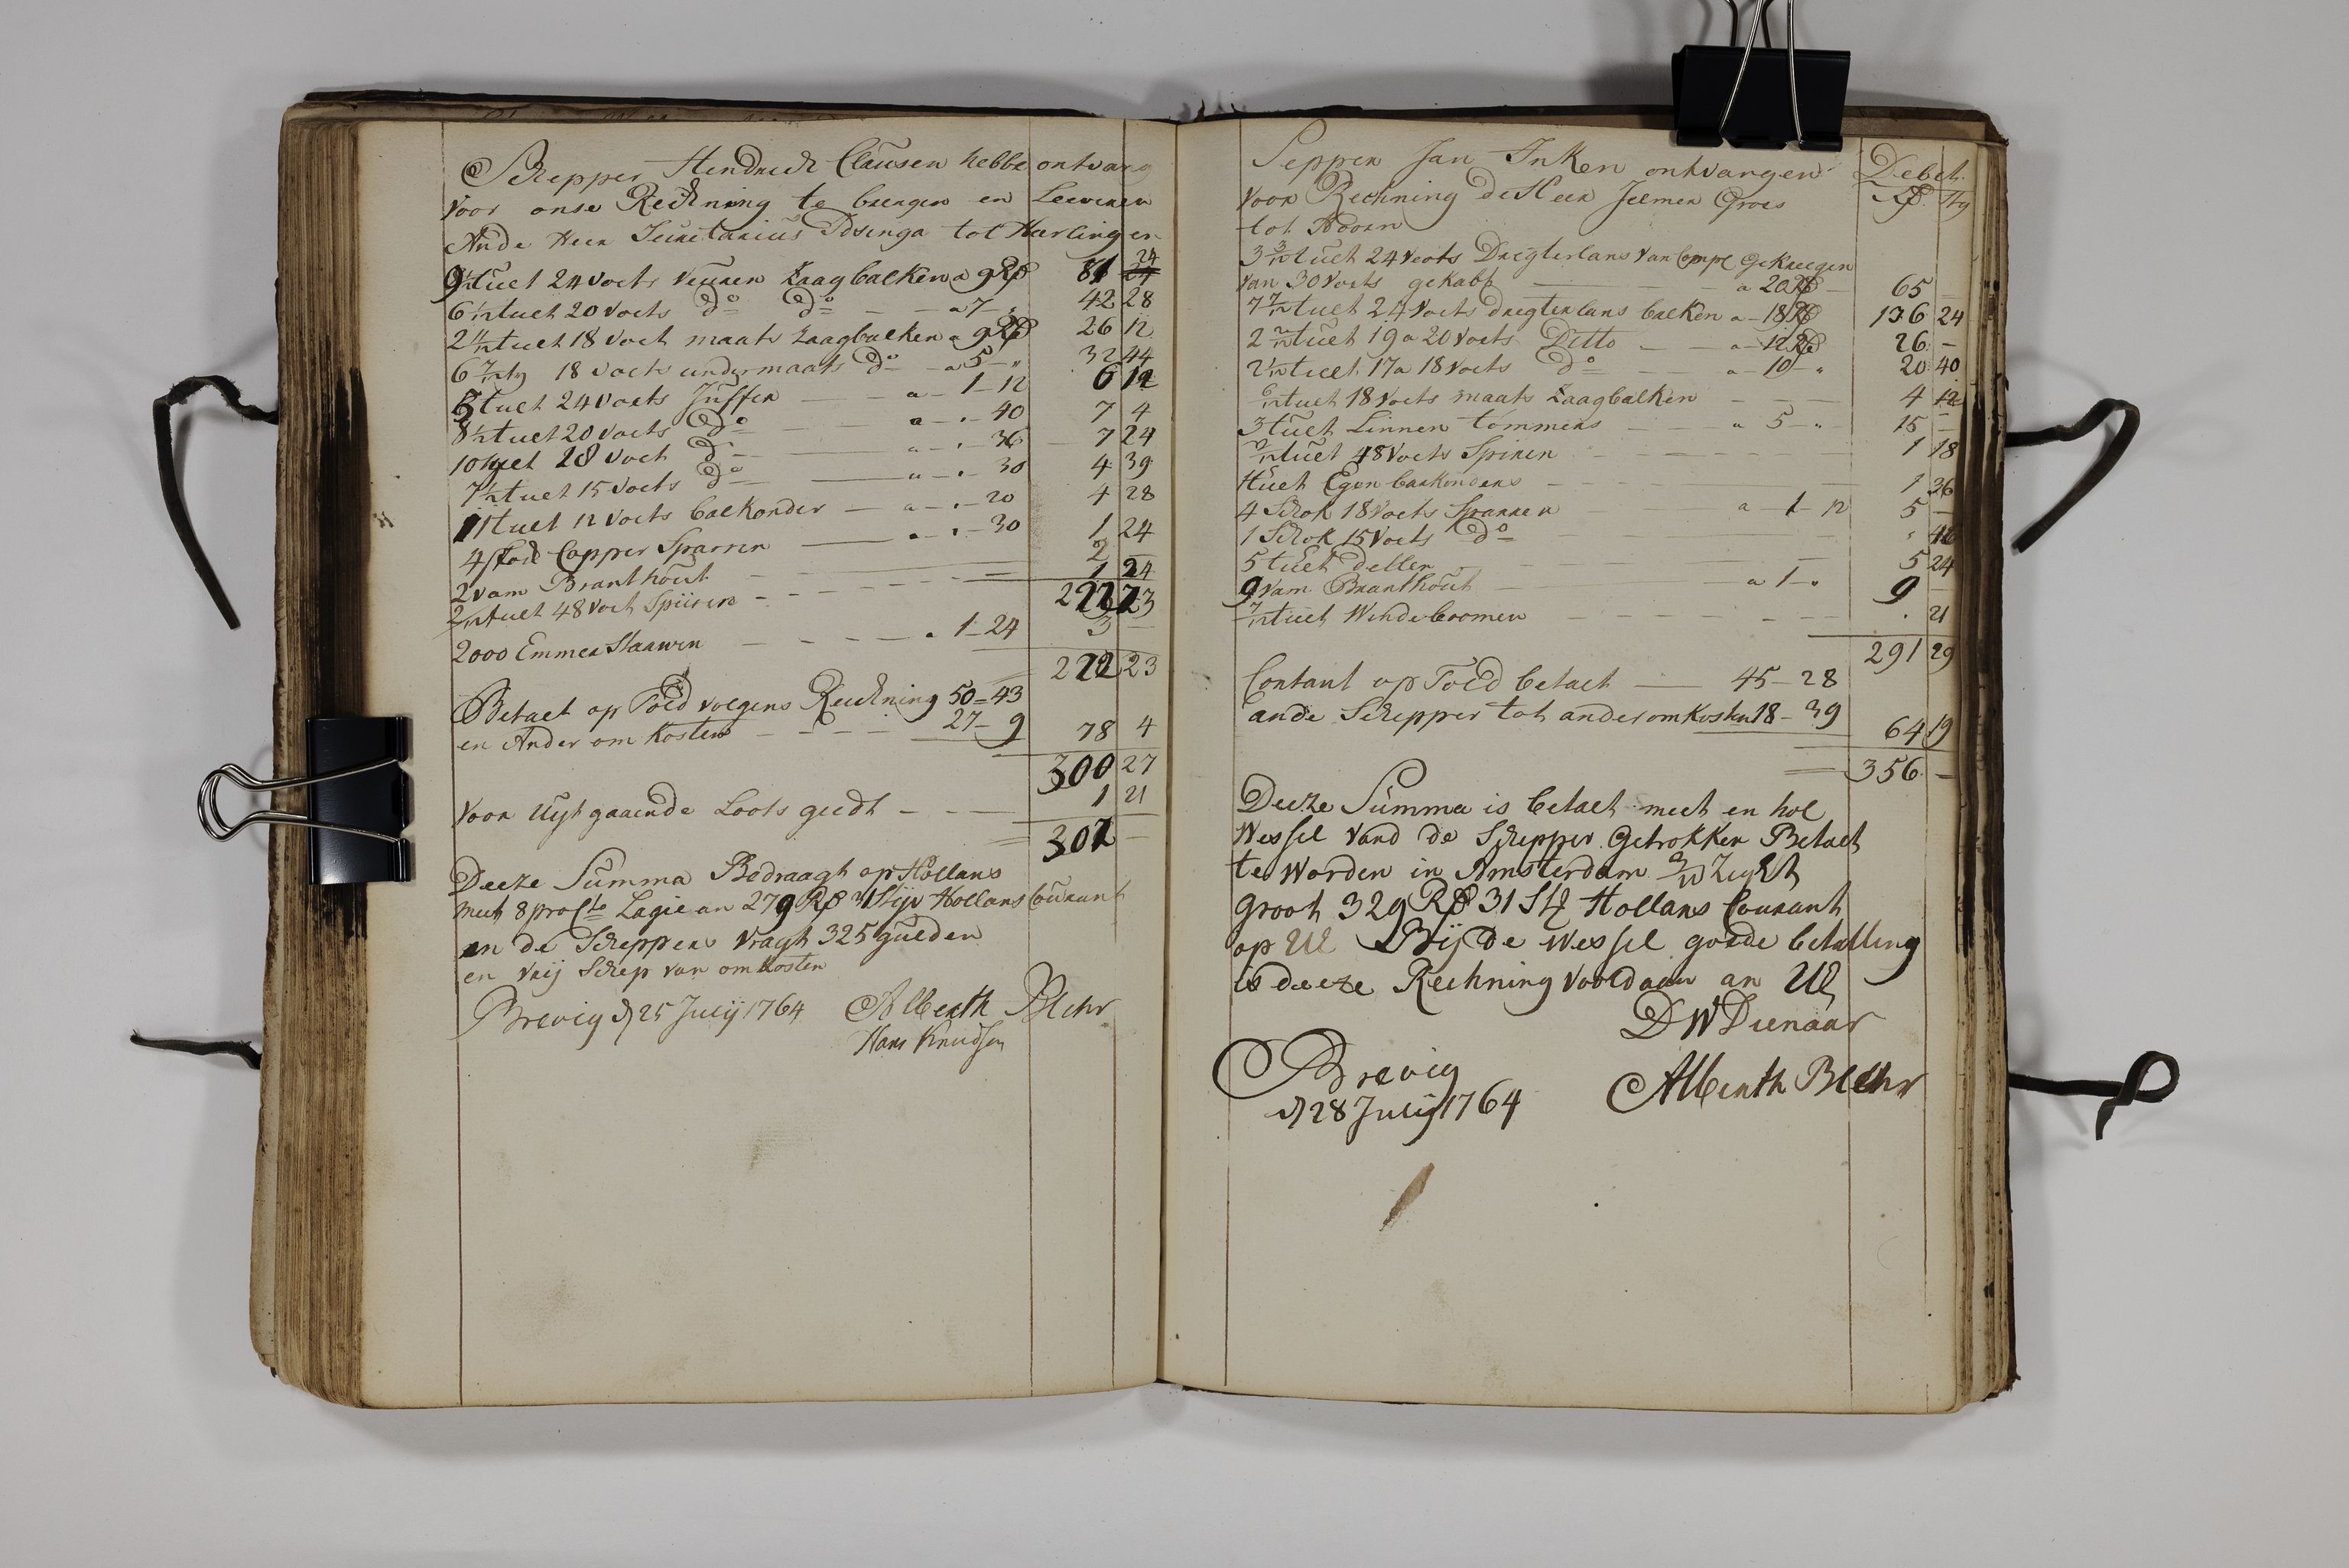 Schepper Hendrich Clausen hebbe ontvang
voor onse Rechning te brengen en Leeveren
Ande Heer Secretarius Idsenga tot Harlingen
9 1/12 tuct 24 voets veuren Zaagbalken a 9 Rd 81 24
6 1/12 tuct 20 voets do do a 7 „ 42 28
2 11/12 tuct 18 voet maats Zaagbalken a 9 Rd 26 12
6 7/12 ty 18 voets undermaats do a 5 „ 32 44
5 tuct 24 voets Juffer a 1 - 12 6 12
8 1/2 tuct 20 voets do a - . - 40 7 4
10 tyct 18 voet do a - . - 36 7 24
7 1/2 tuct 15 voets do a - . - 30 4 39
11 tuct 12 voets balkonder a - . - 20 4 28
4 stod Copper Sparren . - 30 1 24
2 vam Branthout 2 -
2/12 tuct 48 voet Spiiren 1 24
23
2000 Emmer Staaven . 1 - 24 3 -
222 23
Betaet op Told volgens Rechning 50 = 43
en Ander om Kosten 27 - 9 78 4
300 27
voor Uyt gaaende Loots geedt 1 21
302 -
Deeze Summa Bedraagt op Hollans
met 8 pro Cto Lagie an 279 Rd 31 Styv Hollans Courant
en de Scheppers vragt 325 gulden
en vrij Schep van om Kosten
Brevig d 25 Julij 1764 Alberth Blehr
Hans Knudsen
Sepper Jan Inken ontvangen Debet.
voor Rechning de Heer Jelmer Groes Rd. Sty
tot Hoorn
3 3/12 tuct 24 voets Dregterlans van Compe gekreegen
van 30 voets gekabt a 20 Rd 65 -
7 7/12 tuct 24 voets dregterlans balken a 18 Rd 136 24
2 2/12 tuct 19 a 20 voets Ditto a 12 Rd 26 -
2 1/12 tuct 17 a 18 voets do a 10 „ 20 40
6/12 tuct 18 voets maats Zaagbalken 4 12
3 tuct Linnen tommers a 5 - „ 15 -
2/12 tuct 48 voets Spiren 1 18
tuct Egen baskonders 1 36
4 Schok 18 voets Sparren a 1 - 12 5 -
1 Schok 15 voets do .
5 tuct deller 5 24
9 vam Branthout a 1 - „ 9 -
7/12 tuct Windeboomen . 21
291 29
Contant op Told betaet 45 - 28
ande Schepper tot ander om Kosten 18 - 39 64 19
356 -
Deeze Summa is betaet meet en hol
Wessel vand de Schepper Getrokken Betaet
te worden in Amsterdam
Groot 329 Rd 31 Sty Hollans Courant
op Ul Bij de Wessel goede betalling
is deeze Rechning voldaan an Ul
D W Dienaar
Brevig Alberth Blehr
d 28 Julij 1764